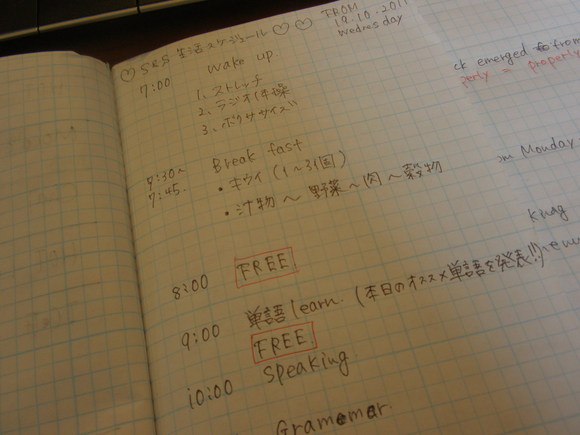 生活スケジュール♡♡ FROM
19.10.2011
Wednesday
7:00 Wake up
1、ストレッチ
2、ラジオ体操
3、ボクササイズ
7:30~ Break fast
7:45. ・キウイ(1~3個)
・汁物~野菜~肉~穀物
8:00 FREE
9:00 単語learn.(本日のオススメ単語を発表!!)
FREE
10:00 speaking
Gramemar
emerged from
perly = properly
Monday